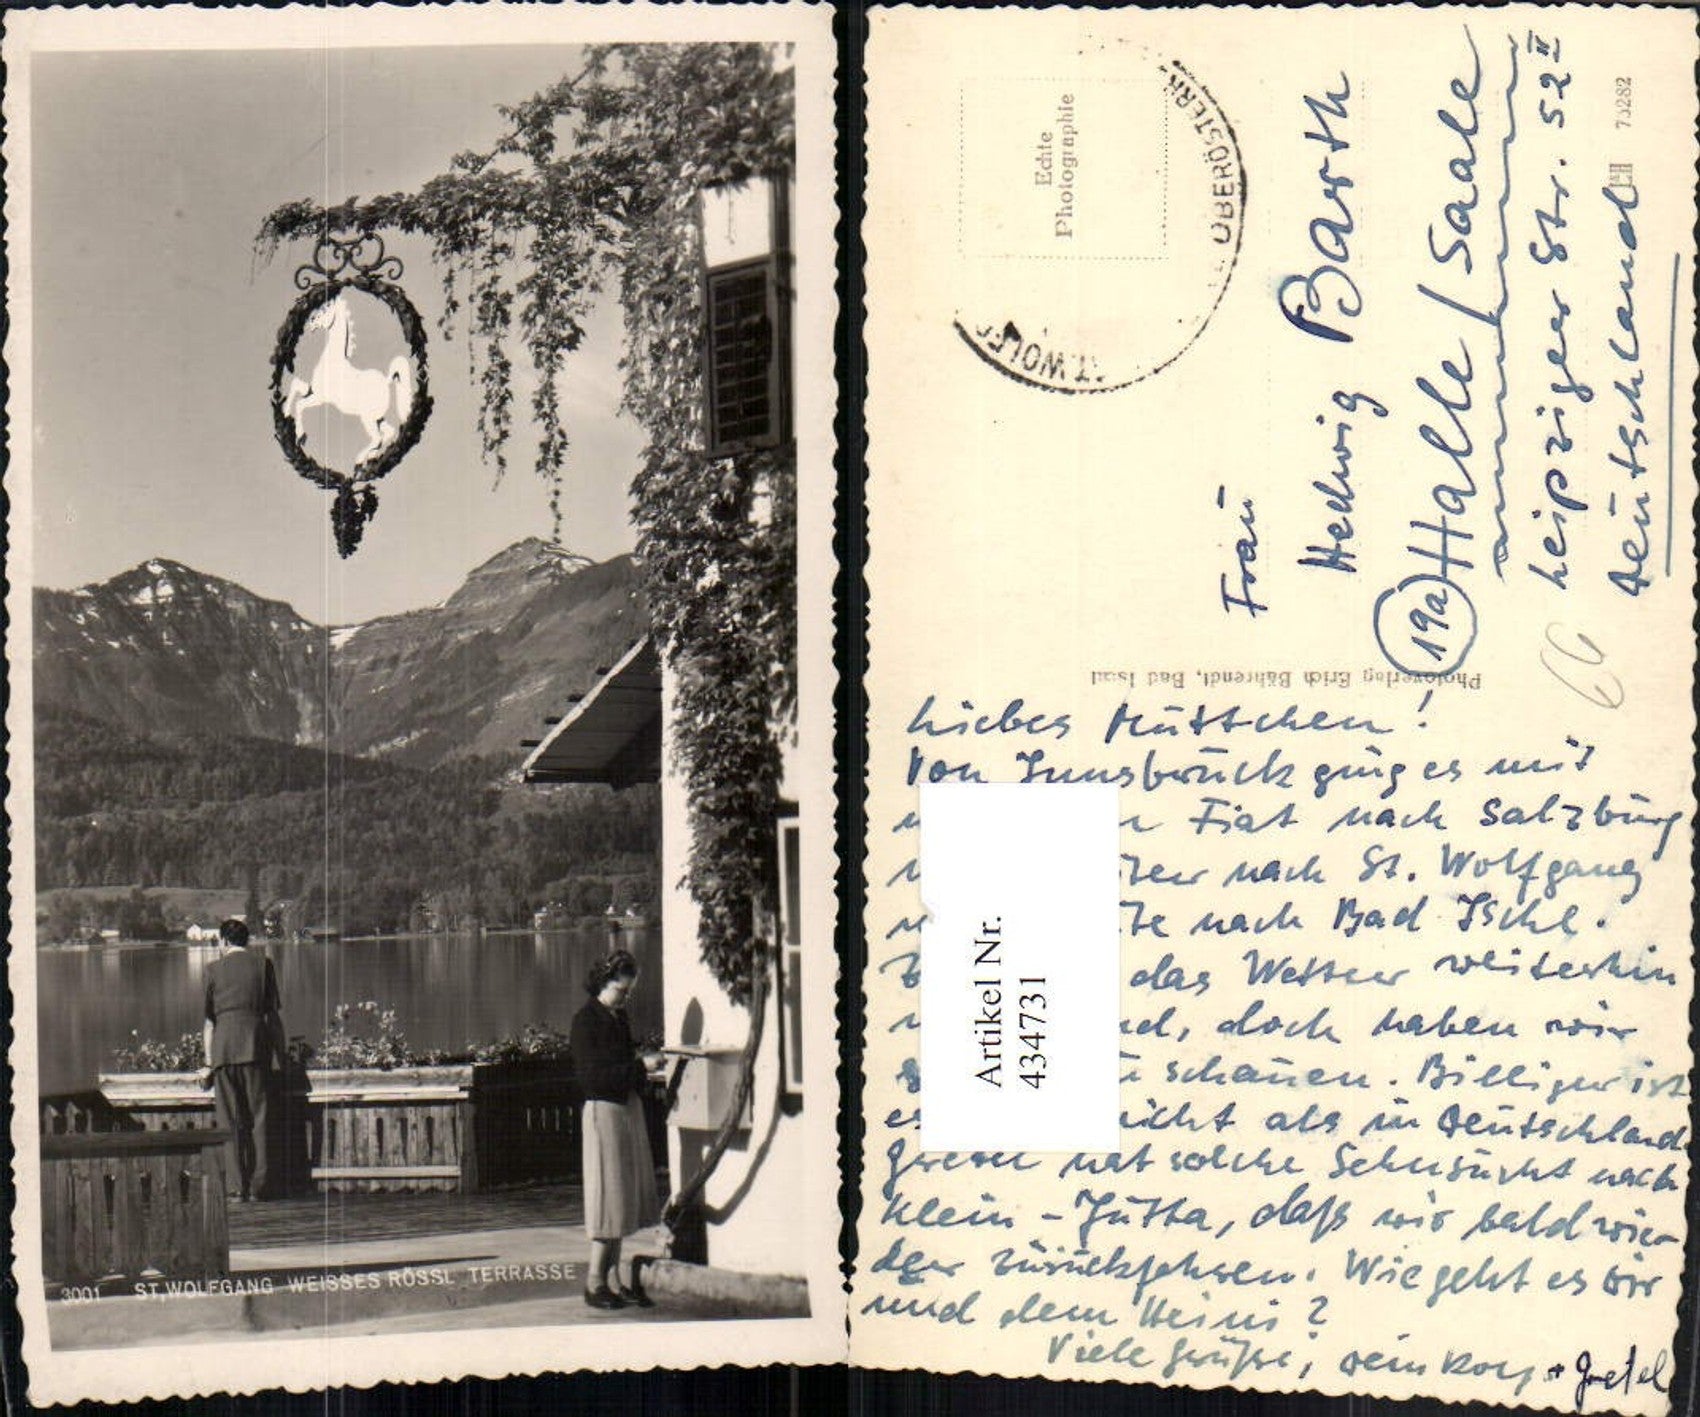 3001 ST. WOLFGANG WEISSES RÖSSL TERRASSE
Echte
Photographie
ST. WOLFG
OBERÖSTERR
75282
Photoverlag Erich Bährendt, Bad Ischl
Frau
Hedwig Barth
(19a) Halle / Saale
Leipziger Str. 52 II
Deutschland
66
Liebes Muttchen!
Von Innsbruck ging es mit
Fiat nach Salzburg
nach St. Wolfgang
nach Bad Ischl.
das Wetter weiterhin
doch haben wir
schauen. Billiger ist
es nicht als in Deutschland
Gretel hat solche Sehnsucht nach
Klein-Jutta, daß wir bald wie-
der zurückfahren. Wie geht es Dir
und dem Heini?
Viele Grüße, Dein + Gretel
Artikel Nr.
434731